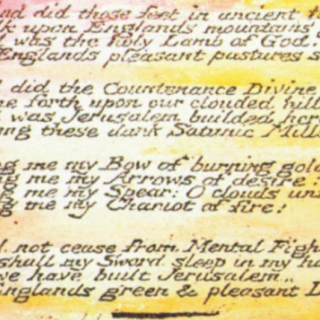 did those feet in ancient
upon Englands mountains
was the holy Lamb of God
Englands pleasant pastures
did the Countenance Divine
forth upon our clouded hill
was Jerusalem builded here
these dark Satanic Mills
me my Bow of burning gold
me my Arrows of desire:
me my Spear: O clouds un
me my Chariot of fire!
not cease from Mental Figh
shall my Sword sleep in my ha
we have built Jerusalem,
Englands green & pleasant L